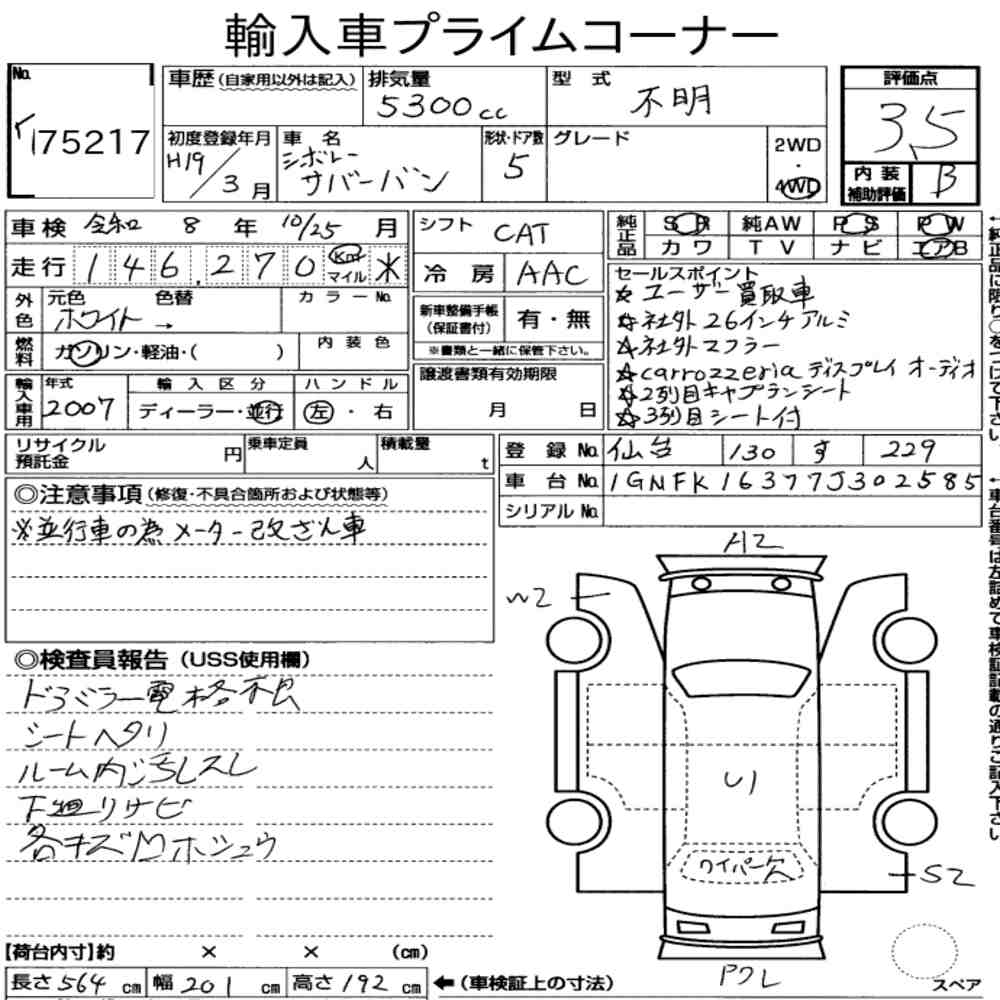 輸入車プライムコーナー
No.
75217
車歴(自家用以外は記入)
排気量
5300cc
型式
不明
評価点
3.5
初度登録年月
H19/3月
車名
シボレー
サバーバン
形状・ドア数
5
グレード
2WD
・
4WD
内装
補助評価
B
車検 令和 8 年 10/25 月
シフト CAT
純正品
SR 純AW PS PW
カワ TV ナビ エアB
走行 146,270 Km マイル ※
冷房 AAC
外色
元色 色替 カラーNo.
ホワイト →
新車整備手帳
(保証書付)
有・無
※書類と一緒に保管下さい。
セールスポイント
☆ユーザー買取車
☆社外26インチアルミ
☆社外マフラー
☆carrozzeriaディスプレイオーディオ
☆2列目キャプテンシート
☆3列目シート付
燃料
ガソリン・軽油・( )
内装色
譲渡書類有効期限
月 日
輸入車用
年式
2007
輸入区分
ディーラー・並行
ハンドル
左・右
リサイクル
預託金
円
乗車定員
人
積載量
t
登録No. 仙台 130 す 229
車台No. 1GNFK16377J302585
シリアルNo.
◎注意事項(修復・不具合箇所および状態等)
※並行車の為メーター改ざん車
◎検査員報告(USS使用欄)
ドアミラー電格不良
シートヘタリ
ルーム内汚レスレ
下廻リサビ
各キズ凹ホシュウ
A2
W2
U1
ワイパー欠
S2
Pワレ
スペア
【荷台内寸】約 × × (cm)
長さ564cm 幅201cm 高さ192cm
←(車検証上の寸法)
←純正品に限り○をつけて下さい。
←車台番号は左詰めで車検証記載の通りご記入下さい